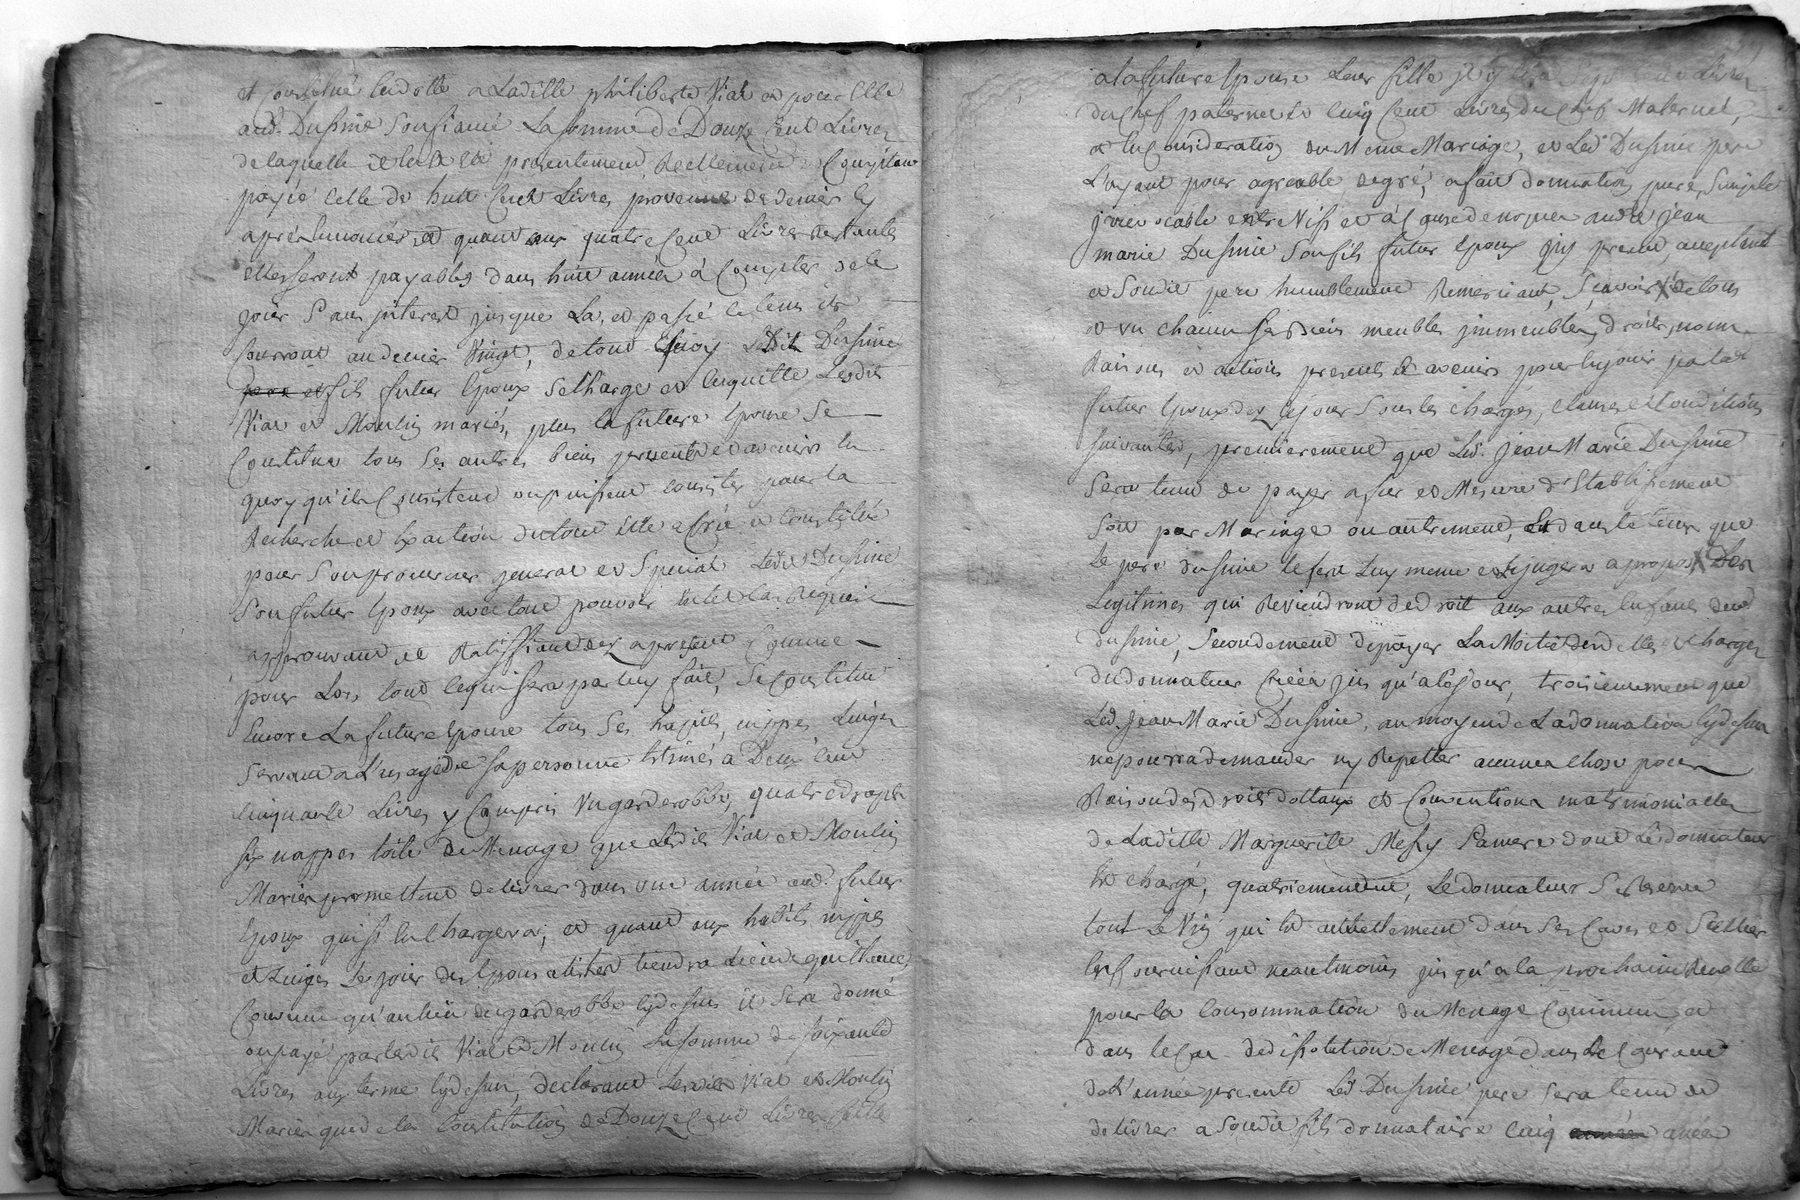 et Constitué en dotte a Ladille philiberte Viat et pour Elle
aud. Dusinie son fiancé La somme de Douze Cent Livres
de laquelle il a Eté presentement, Reellement et Comptant
payé Celle de huit Cent Livres provenue de denier Es
aprés annoncés et quant aux quatre Cent Livres restantes
elles seront payables dans huit année à Compter de ce
jour Sans jnterest jusque La, et passé le tems ils
Courront au denier Vingt, de tout quoy Ledit Dusinie
fils futur Epoux Se Charge et En quitte Lesdits
Viat et Moulin mariés, plus la future Epouse Se
Constitue tous Ses autres biens present et avenirs En
quoy qu'ils Consistent ou puissent Consister pour la
Recherche et Exaction du tout Elle a Crée et Constitué
pour Son procureur general et Special Ledit Dusinie
Son futur Epoux avec tout pouvoir En tel Cas Requis
approuvant et Ratiffiant dez apresent Comme
pour Lors tout Ce qui sera par luy fait, Se Constitue
Encore La future Epouse tous Ses habits, nippes Linges
Servant a L'usage de Sa personne Estimés a Deux Cent
Cinquante Livres y Compris Un garderobbe, quatre draps
Six nappes toile de Menage que Lesdits Viat et Moulin
Mariés promettent delivrer dans une année aud. futur
Epoux qui s'en Chargera; et quant aux habits nippes
et Linges Le jour des Epousailles tiendra Lieu de quittance,
Convenu qu'au lieu du garderobbe Cydessus il Sera donné
ou payé par lesdits Viat et Moulin La somme de soixante
Livres aux terme Cydessus, declarant Lesdits Viat et Moulin
Mariés que de la Constitution de Douze Cent Livres faitte
a la future Epouse Leur fille jl y En a Livres
du Chef paternel et Cinq Cent Livres du Chef Maternel,
et En Consideration du Meme Mariage, et Led. Dusinie pere
L'ayant pour agreable de gré, a fait donnation pure, Simple
jrrevocable entre Vifs et à Cause de noces aud. jean
marie Dusinie Son fils futur Epoux jcy present, acceptant
et Sondit pere humblement Remerciant, Scavoir de tous
et un chacun Ses Biens meubles jmmeubles, droits, noms
Raisons et actions presents et avenirs pour En jouir par led.
futur Epoux dez Ce jour Sous les charges, clauses et Conditions
suivantes, premierement que Led. jean Marie Dusinie
Sera tenu de payer a fur et Mesure d'Etablissement
Soit par Mariage ou autrement, Et dans le tems que
Le pere Dusinie le fera Luy meme et Le jugera apropos, X Les
Legitimes qui Reviendront de droit aux autres Enfants dud.
dusinie, Secondement de payer La Moitié des dettes et Charges
du donnateur Créés jus qu'a Ce jour, troisiemement que
Led. Jean Marie Dusinie, au moyen de La donnation Cydessus
ne pourra demander ny Repetter aucune Chose pour
Raison des droits dottaux et Conventions matrimonialles
de Laditte Marguerite Messy Sa mere dont Le donnateur
Est chargé, quatriemement, Le donnateur Se Reserve
tout Le Vin qui Est actuellement dans Ses Caves et Scellier
En fournissant neantmoins jus qu'a la prochaine Recolte
pour la Consommation du Menage Commun, et
dans le Cas de dissolution de Menage dans Le Courant
de L'année presente Led. Dusinie pere Sera tenu de
delivrer a Sondit fils donnataire Cinq anées